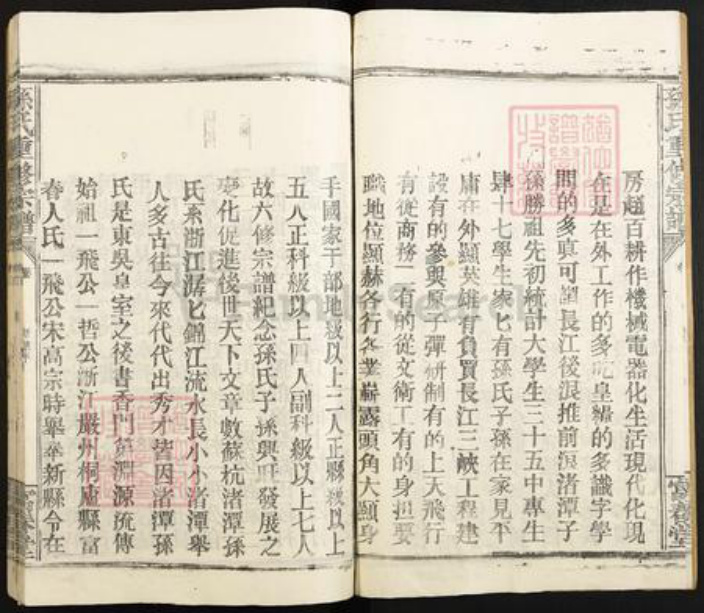 孫氏重修宗譜
房超百耕作機械電器化生活現代化現
在是在外工作的多吃皇糧的多識字學
問的多真可謂長江後浪推前浪渚潭子
孫勝祖先初統計大學生三十五中專生
肆十七學生家匕有孫氏子孫在家見平
庸在外顯英雄有負買長江三峽工程建
設有的參與原子彈研制有的上天飛行
有從商務工有的從文衛工有的身担要
職地位顯赫各行各業嶄露頭角大顯身
手國家干部地級以上二人正縣級以上
五人正科級以上四人副科級以上七人
故六修宗譜紀念孫氏子孫興旺發展之
變化促進後世天下文章數蘇杭渚潭孫
氏系浙江潺匕錦江流水長小小渚潭舉
人多古往今來代代出秀才皆因渚潭孫
氏是東吳皇室之後書香門第淵源流傳
始祖一飛公一哲公浙江嚴州桐廬縣富
春人氏一飛公宋高宗時舉奉新縣令在
孫氏重修宗譜